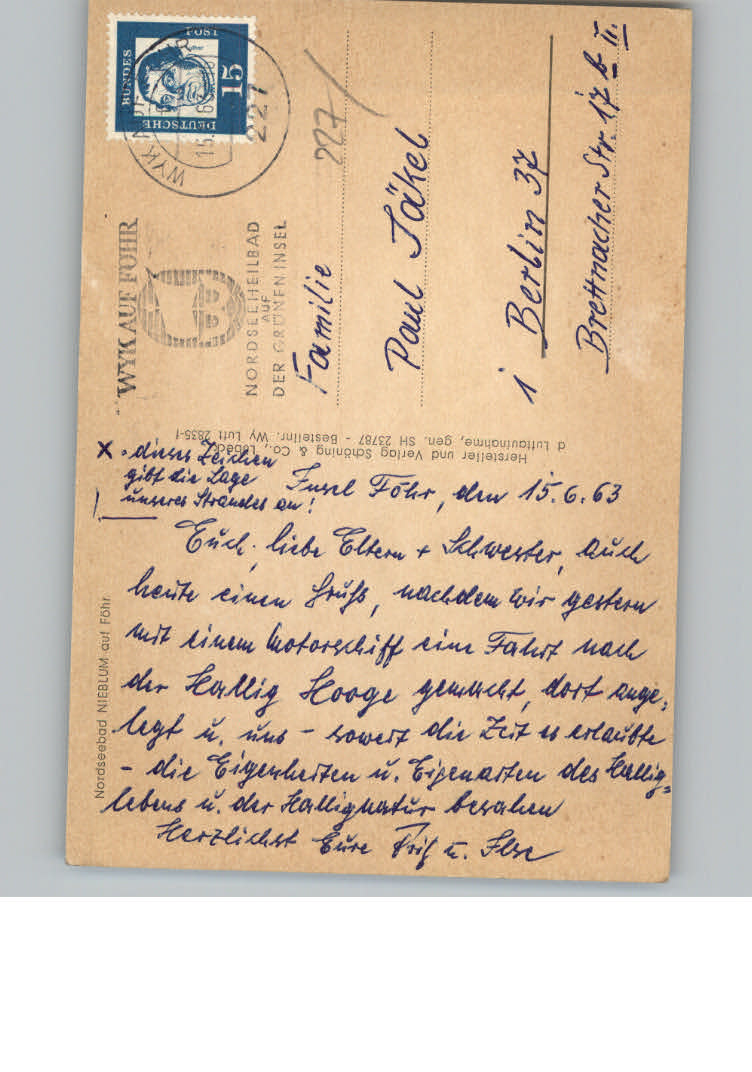 DEUTSCHE
BUNDES
POST
15
Luther
WYK AUF FÖHR
15. 6
227
WYK AUF FÖHR
NORDSEEHEILBAD
AUF
DER GRÜNEN INSEL
227
Familie
Paul Jäkel
1 Berlin 37
Brettnacher Str. 17 b II
Hersteller und Verlag Schöning & Co., Lübeck
d Luftaufnahme, gen. SH 23787 - Bestellnr. Wy Luft 2835-f
Nordseebad NIEBLUM auf Föhr
X - dieses Zeichen
gibt die Lage
unseres Strandes an!
Insel Föhr, den 15.6.63
Euch, liebe Eltern + Schwester, auch
heute einen Gruß, nachdem wir gestern
mit einem Motorschiff eine Fahrt nach
der Hallig Hooge gemacht, dort ange-
legt u. uns - soweit die Zeit es erlaubte
- die Eigenheiten u. Eigenarten des Hallig-
lebens u. der Hallignatur besahen
Herzlichst Eure u. Ilse